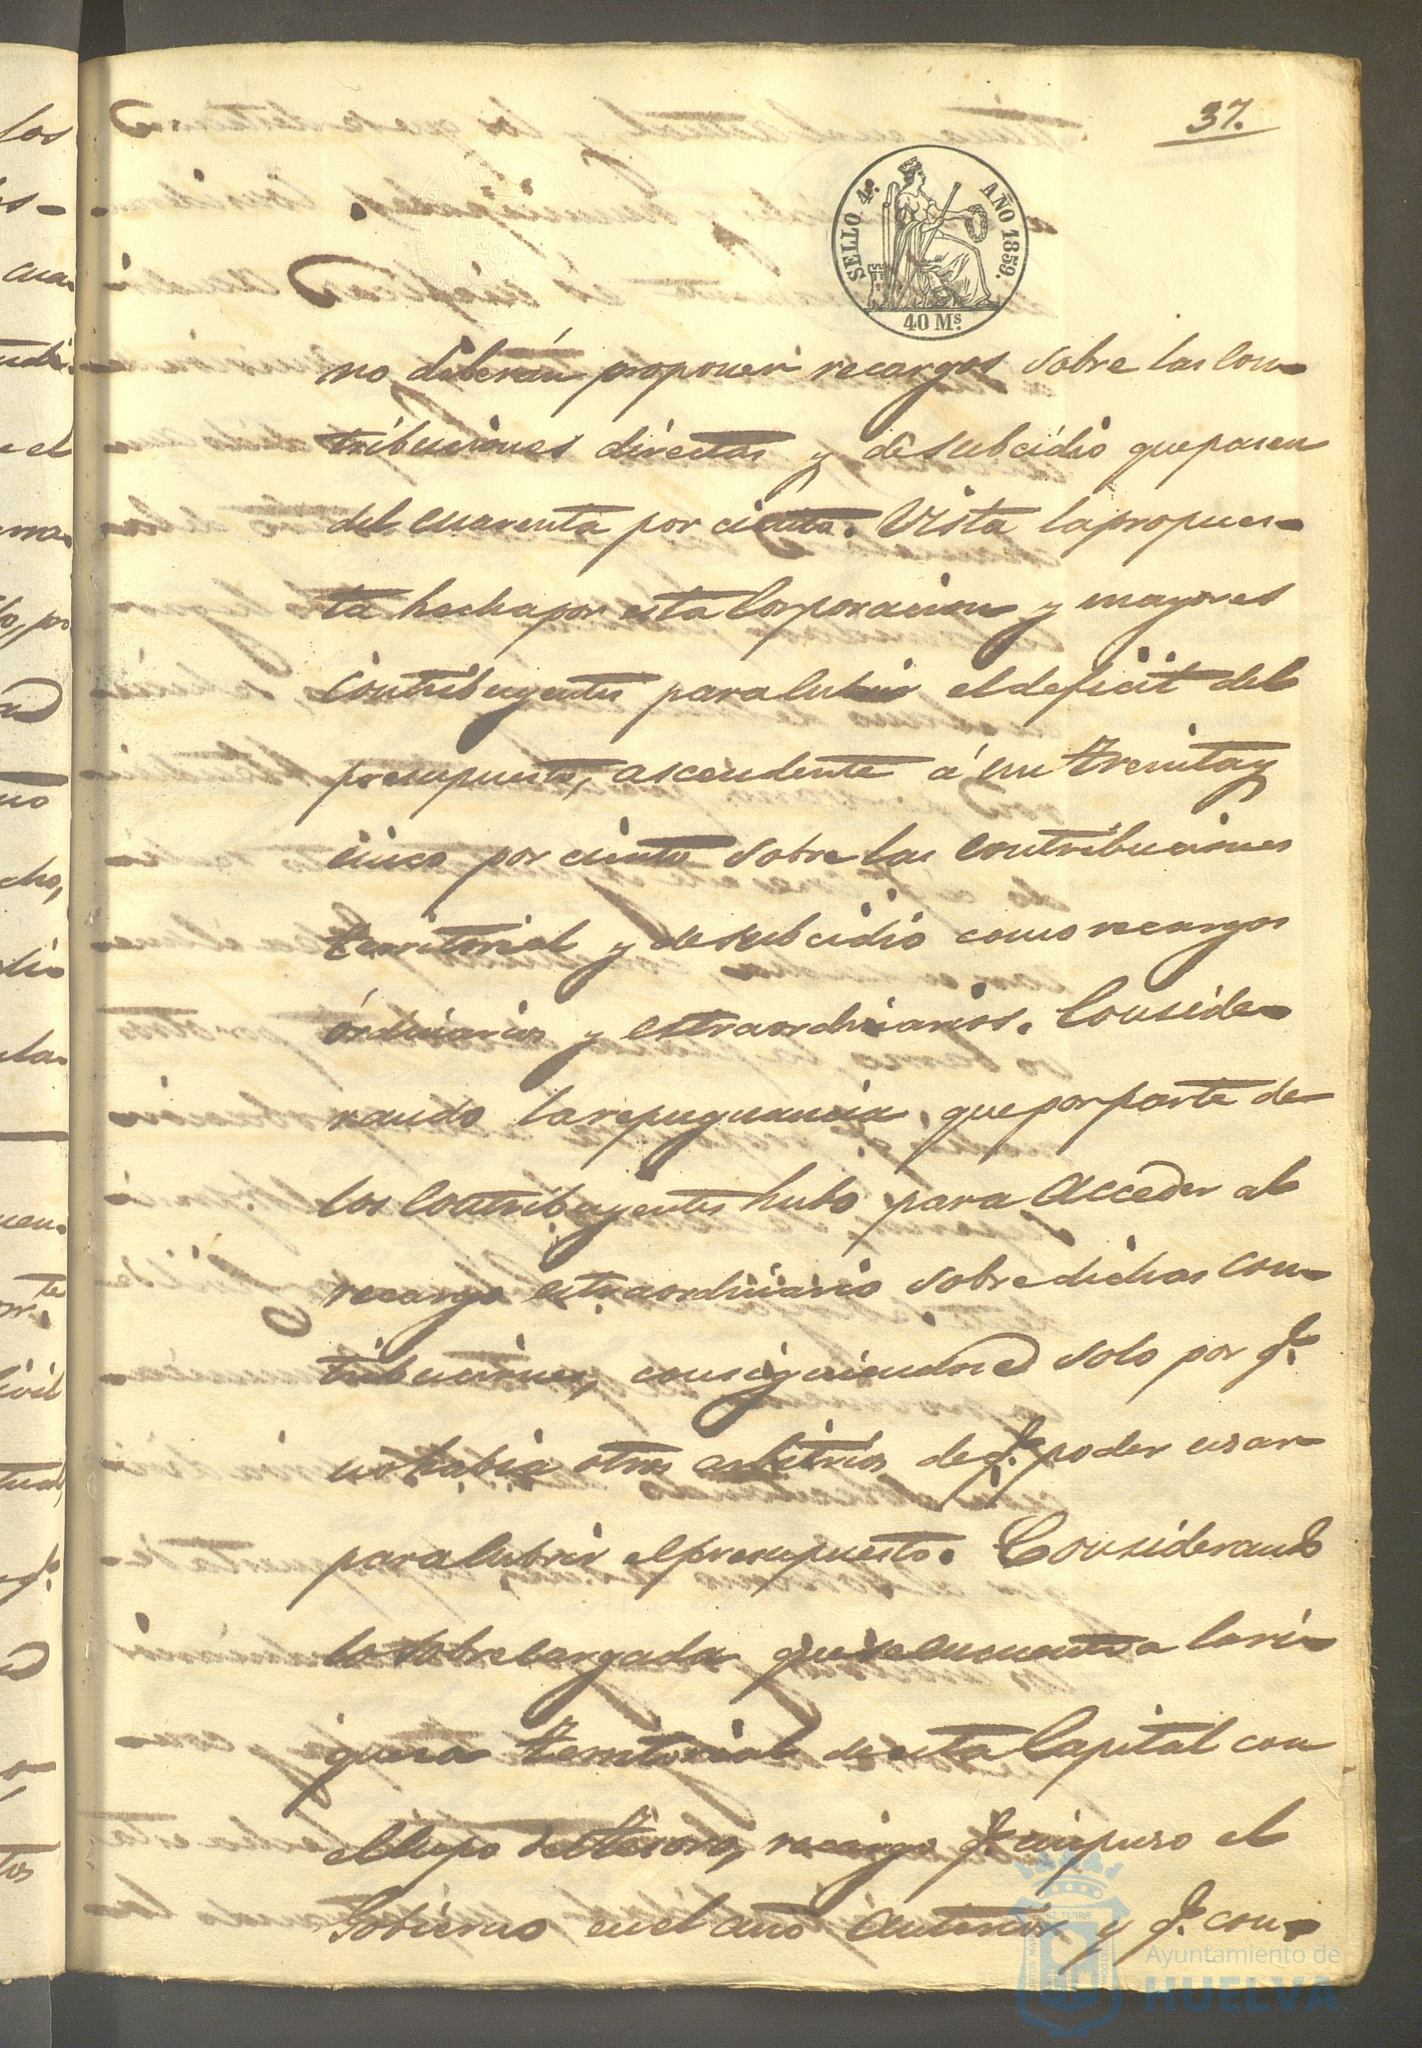 37.
SELLO 4º. AÑO 1859.
40 Ms.
no deberán proponer recargos sobre las con-
tribuciones directas y de subcidio que pasen
del cuarenta por ciento. Vista la propues-
ta hecha por esta Corporacion y mayores
contribuyentes para cubrir el deficit del
presupuesto, ascendente á un treinta y
cinco por ciento sobre las contribuciones
territorial y de subcidio como recargos
órdinarios y estraordinarios. Conside-
rando la repugnancia, que por parte de
los contribuyentes hubo para acceder al
recargo estraordinario sobre dichas con-
tribuciones, consiguiendose solo por q.e
no habia otros arbitrios de q.e poder usar
para cubrir el presupuesto. Considerando
lo sobrecargada que se encuentra la ri-
queza territorial de esta Capital con
el cupo del tesoro, recargo q.e impuso el
Gobierno en el año anterior y q.e con-
Ayuntamiento de
HUELVA